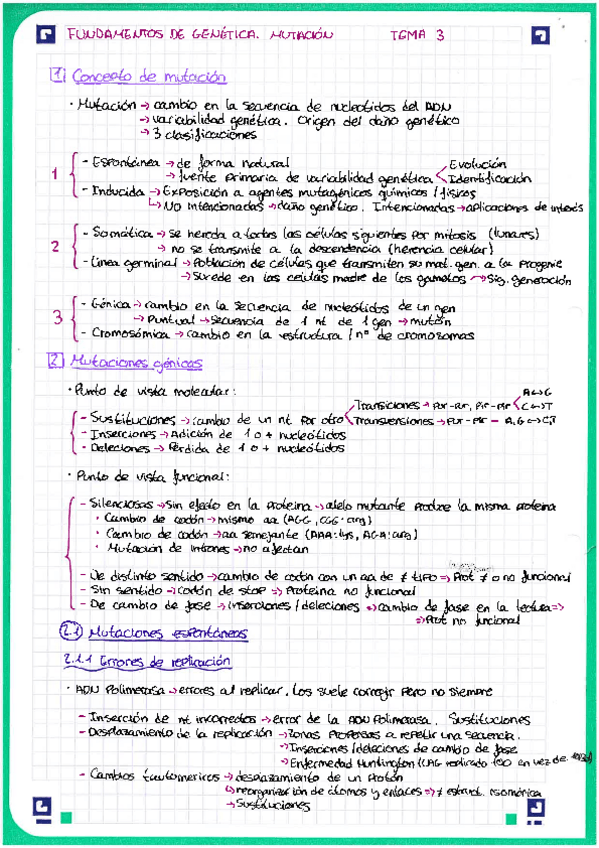 FUNDAMENTOS DE GENÉTICA. MUTACIÓN TEMA 3
1) Concepto de mutación
· Mutación → cambio en la secuencia de nucleótidos del ADN
→ variabilidad genética. Origen del daño genético
→ 3 clasificaciones
1 - Espontánea → de forma natural
→ fuente primaria de variabilidad genética Evolución Identificación
- Inducida → Exposición a agentes mutagénicos químicos / físicos
↳ No intencionadas → daño genético. Intencionadas → aplicaciones de interés
2 - Somática → se hereda a todas las células siguientes por mitosis (lunares)
→ no se transmite a la descendencia (herencia celular)
- Línea germinal → Población de células que transmiten su mat. gen. a la progenie
→ Sucede en las células madre de los gametos → Sig. generación
3 - Génica → cambio en la secuencia de nucleótidos de un gen
→ Puntual → secuencia de 1 nt de 1 gen → mutón
- Cromosómica → cambio en la estructura / nº de cromosomas
2) Mutaciones génicas
· Punto de vista molecular:
- Sustituciones → cambio de un nt por otro Transiciones → Pur-Pur, Pir-Pir A↔G C↔T
Transversiones → Pur-Pir - A,G ↔ C,T
- Inserciones → Adición de 1 o + nucleótidos
- Deleciones → Pérdida de 1 o + nucleótidos
· Punto de vista funcional:
- Silenciosas → sin efecto en la proteína → alelo mutante produce la misma proteína
· Cambio de codón → mismo aa (AGG, CGG: arg)
· Cambio de codón → aa semejante (AAA: lys, AGA: arg)
· Mutación de intrones → no afectan
- De distinto sentido → cambio de codón con un aa de ≠ tipo ⇒ Prot ≠ o no funcional
- Sin sentido → codón de stop ⇒ Proteína no funcional
- De cambio de fase → inserciones / deleciones → cambio de fase en la lectura ⇒
⇒ Prot no funcional
2.1) Mutaciones espontáneas
2.1.1 Errores de replicación
· ADN Polimerasa → errores al replicar. Los suele corregir pero no siempre
- Inserción de nt incorrectos → error de la ADN Polimerasa. Sustituciones
- Desplazamiento de la replicación → zonas propensas a repetir una secuencia.
→ Inserciones / deleciones de cambio de fase
→ Enfermedad Huntington (CAG replicado 100 en vez de
- Cambios tautoméricos → desplazamiento de un protón
↳ reorganización de átomos y enlaces ⇒ ≠ estruct. isomérica
→ Sustituciones